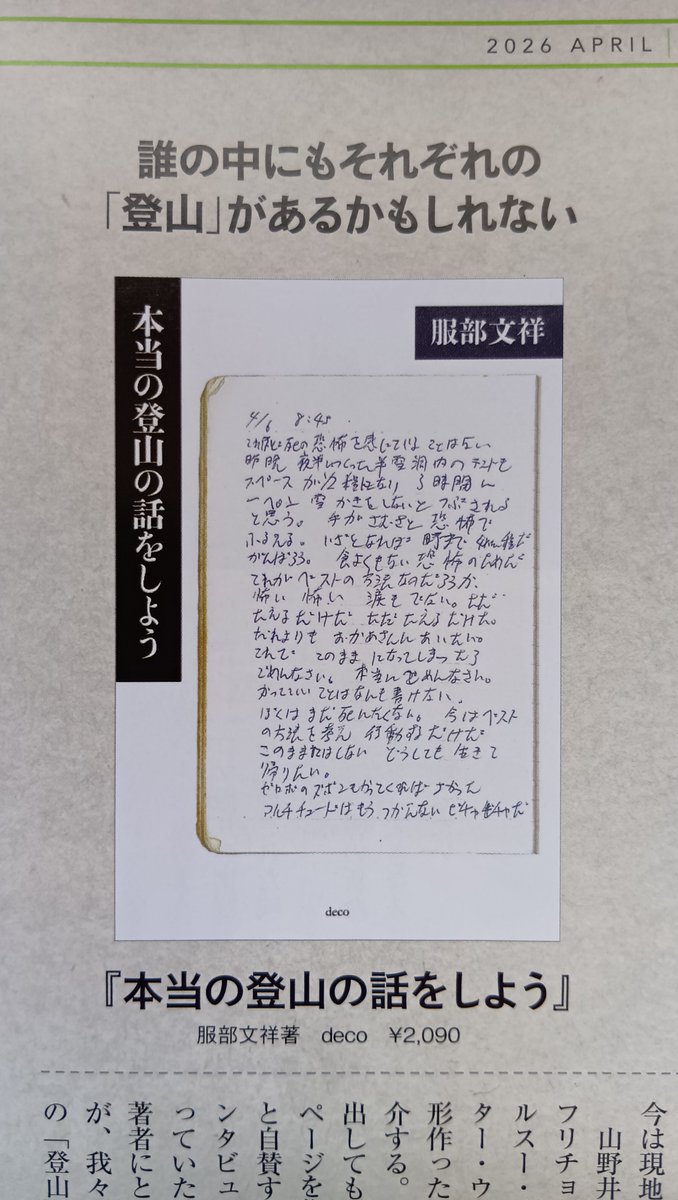 2026 APRIL
誰の中にもそれぞれの
「登山」があるかもしれない
本当の登山の話をしよう
服部文祥
4/6 8:45
これほど死の恐怖を感じていることはない
昨晩 夜半につくった半雪洞内のテントも
スペースが1/2程になり 3時間に
一ペン 雪かきをしないと つぶされる
と思う。 手がさむさと 恐怖で
ふるえる。 いざとなれば
がんばろう。 食よくもない 恐怖のためだ
これがベストの方法なのだろうか
怖い 怖い 涙もでない。ただ
たえるだけだ ただ たえるだけだ。
だれよりも おかあさんに あいたい。
これで このまま になってしまったら
ごめんなさい。 本当に ごめんなさい。
かっていいことはなんも書けない、
ぼくは まだ 死にたくない。 今はベスト
の方法を考え 行動するだけだ
このままではしない どうしても 生きて
帰りたい。
ゼロポのズボンもかってくれば よかった
アルチチュードはもう つかえない ビチャビチャだ
deco
『本当の登山の話をしよう』
服部文祥著 deco ¥2,090
今は現地
山野井
フリチョ
ルスー・
ター・ウ
形作った
介する。
出しても
ページを
と自賛す
ンタビュ
っていた
著者にと
が、我々
の「登山